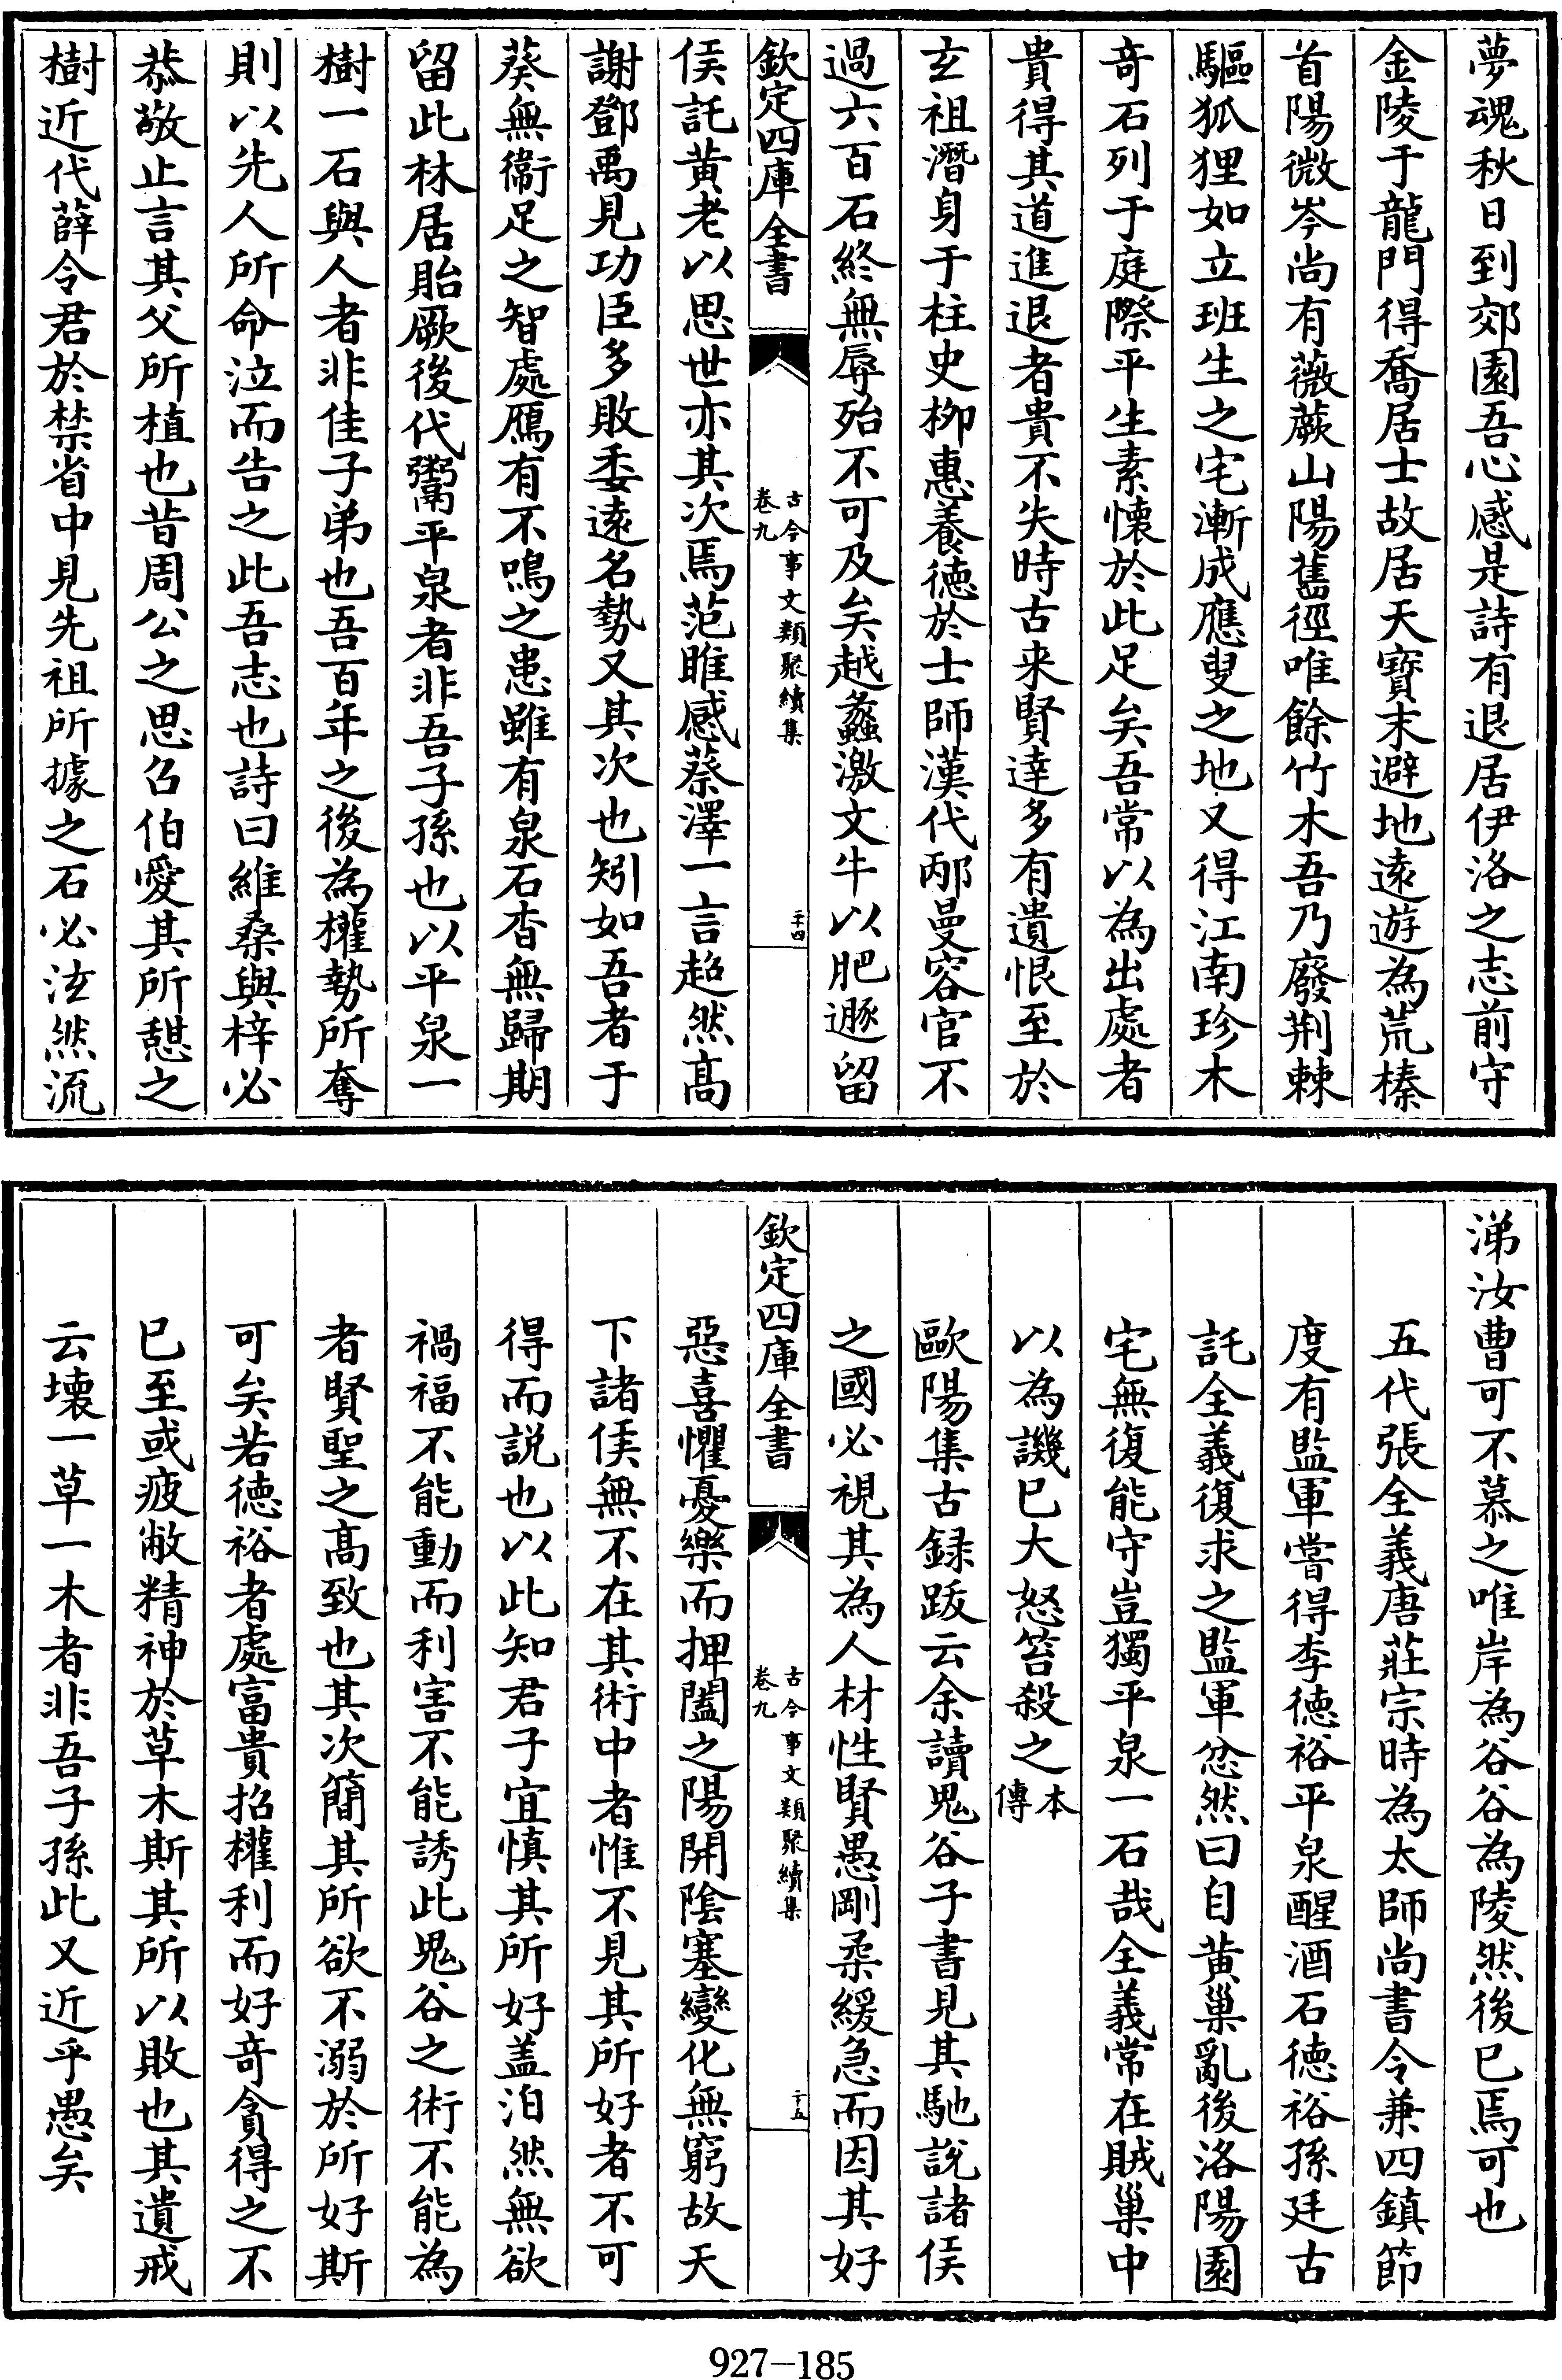 夢魂秋日到郊園吾心感是詩有退居伊洛之志前守
金陵于龍門得喬居士故居天寳末避地遠遊為荒榛
首陽微岑尚有薇蕨山陽舊徑唯餘竹木吾乃廢荆棘
驅狐狸如立班生之宅漸成應叟之地又得江南珍木
竒石列于庭際平生素懐於此足矣吾常以為出處者
貴得其道進退者貴不失時古来賢達多有遺恨至於
玄祖潛身于柱史栁惠養徳於士師漢代邴曼容官不
過六百石終無辱殆不可及矣越蠡激文牛以肥遯留
欽定四庫全書
古今事文類聚續集
卷九
二十四
侯託黄老以思世亦其次焉范雎感蔡澤一言超然髙
謝鄧禹見功臣多敗委遠名勢又其次也矧如吾者于
葵無衞足之智處鴈有不鳴之患雖有泉石杳無歸期
留此林居貽厥後代鬻平泉者非吾子孫也以平泉一
樹一石與人者非佳子弟也吾百年之後為權勢所奪
則以先人所命泣而告之此吾志也詩曰維桑與梓必
恭敬止言其父所植也昔周公之思召伯愛其所憇之
樹近代薛令君於禁省中見先祖所據之石必泫然流
涕汝曹可不慕之唯岸為谷谷為陵然後已焉可也
五代張全義唐莊宗時為太師尚書令兼四鎮節
度有監軍嘗得李徳裕平泉醒酒石徳裕孫廷古
託全義復求之監軍忿然曰自黄巢亂後洛陽園
宅無復能守豈獨平泉一石哉全義常在賊巢中
以為譏已大怒笞殺之本傳
歐陽集古録跋云余讀鬼谷子書見其馳説諸侯
之國必視其為人材性賢愚剛柔緩急而因其好
欽定四庫全書
古今事文類聚續集
卷九
二十五
惡喜懼憂樂而押闔之陽開陰塞變化無窮故天
下諸侯無不在其術中者惟不見其所好者不可
得而説也以此知君子宜慎其所好盖泊然無欲
禍福不能動而利害不能誘此鬼谷之術不能為
者賢聖之髙致也其次簡其所欲不溺於所好斯
可矣若徳裕者處富貴招權利而好竒貪得之不
已至或疲敝精神於草木斯其所以敗也其遺戒
云壊一草一木者非吾子孫此又近乎愚矣
927-185